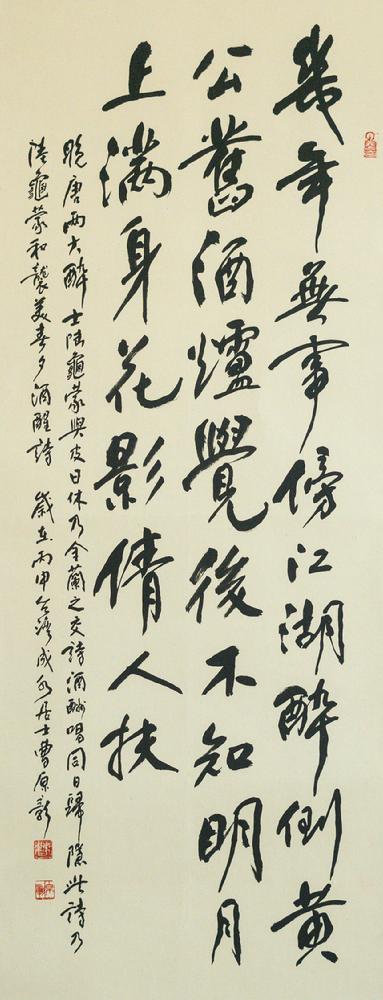 幾年無事傍江湖醉倒黃
公舊酒爐覺後不知明月
上滿身花影倩人扶
晚唐兩大醉士陸龜蒙與皮日休乃金蘭之交詩酒酬唱同日歸隱此詩乃
陸龜蒙和襲美春夕酒醒詩 歲在丙申台灣成永居士曹原彰